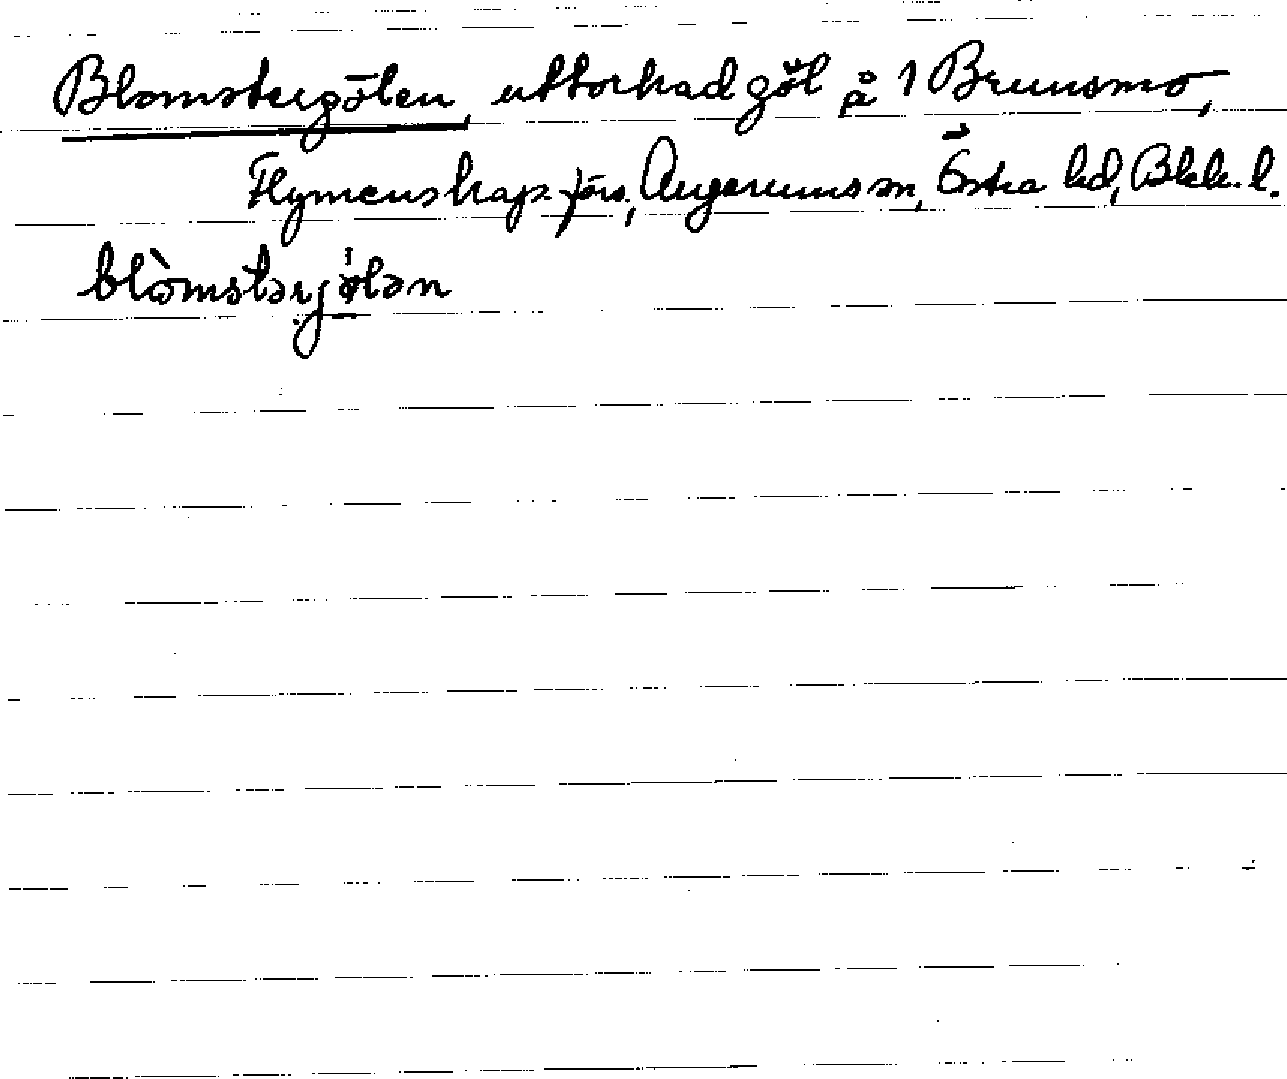 Blomstergölen, uttorkad göl på 1 Brunsmo,
Flymenskaps förs., Augerums sn, Östra hd, Blek. l.
blòmstərjǿlən